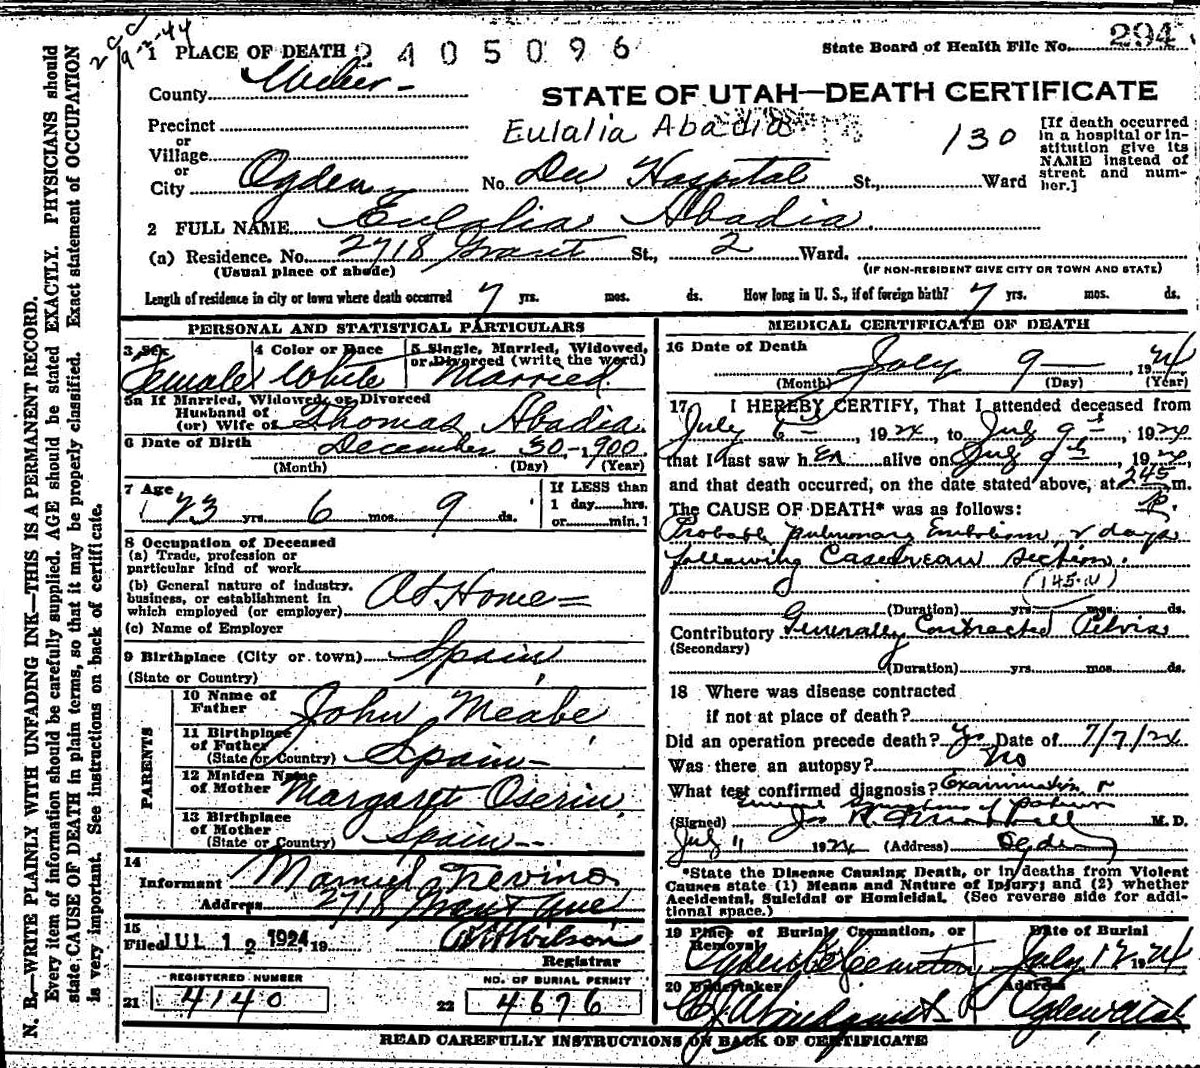 9-2-44
1 PLACE OF DEATH 2405096
State Board of Health File No. 294
County Weber
STATE OF UTAH—DEATH CERTIFICATE
Precinct
or
Village
or
City Ogden
Eulalia Abadia
130
No. Dee Hospital St., Ward
[If death occurred
in a hospital or in-
stitution give its
NAME instead of
street and num-
ber.]
2 FULL NAME Eulalia Abadia
(a) Residence. No. 2718 Grant St., 2 Ward.
(Usual place of abode)
(IF NON-RESIDENT GIVE CITY OR TOWN AND STATE)
Length of residence in city or town where death occurred 7 yrs. mos. ds. How long in U. S., if of foreign birth? 7 yrs. mos. ds.
PERSONAL AND STATISTICAL PARTICULARS
3 Sex Female
4 Color or Race White
5 Single, Married, Widowed,
or Divorced (write the word)
Married
5a If Married, Widowed, or Divorced
Husband of
(or) Wife of Thomas Abadia
6 Date of Birth December 30 - 1900
(Month) (Day) (Year)
7 Age
23 yrs. 6 mos. 9 ds.
If LESS than
1 day......hrs.
or......min.?
8 Occupation of Deceased
(a) Trade, profession or
particular kind of work
(b) General nature of industry,
business, or establishment in
which employed (or employer) At Home
(c) Name of Employer
9 Birthplace (City or town) Spain
(State or Country)
PARENTS
10 Name of
Father John Meabe
11 Birthplace
of Father
(State or Country) Spain
12 Maiden Name
of Mother Margaret Oserin
13 Birthplace
of Mother
(State or Country) Spain
14
Informant Manuel Trevino
Address 2718 Grant Ave
15
Filed JUL 12 1924 19
Wilson
Registrar
REGISTERED NUMBER
21 4140
NO. OF BURIAL PERMIT
22 4676
MEDICAL CERTIFICATE OF DEATH
16 Date of Death
July 9 1924
(Month) (Day) (Year)
17 I HEREBY CERTIFY, That I attended deceased from
July 6, 1924, to July 9th, 1924
that I last saw her alive on July 9th, 1924,
and that death occurred, on the date stated above, at 245 P. m.
The CAUSE OF DEATH* was as follows:
Probable pulmonary Embolism 2 days
following Caesarean section.
(145.)
(Duration) yrs. mos. ds.
Contributory Generally Contracted Pelvis
(Secondary)
(Duration) yrs. mos. ds.
18 Where was disease contracted
if not at place of death?
Did an operation precede death? Yes Date of 7/7/24
Was there an autopsy? No
What test confirmed diagnosis? Examination &
general symptoms of patient
(Signed) Jos R. Morrell M. D.
July 11 1924 (Address) Ogden
*State the Disease Causing Death, or in deaths from Violent
Causes state (1) Means and Nature of Injury; and (2) whether
Accidental, Suicidal or Homicidal. (See reverse side for addi-
tional space.)
19 Place of Burial Cremation, or
Removal
Ogden City Cemetery
Date of Burial
July 12 1924
20 Undertaker
Lindquist
Address
Ogden Utah
READ CAREFULLY INSTRUCTIONS ON BACK OF CERTIFICATE
N. B.—WRITE PLAINLY WITH UNFADING INK—THIS IS A PERMANENT RECORD.
Every item of information should be carefully supplied. AGE should be stated EXACTLY. PHYSICIANS should
state CAUSE OF DEATH in plain terms, so that it may be properly classified. Exact statement of OCCUPATION
is very important. See instructions on back of certificate.